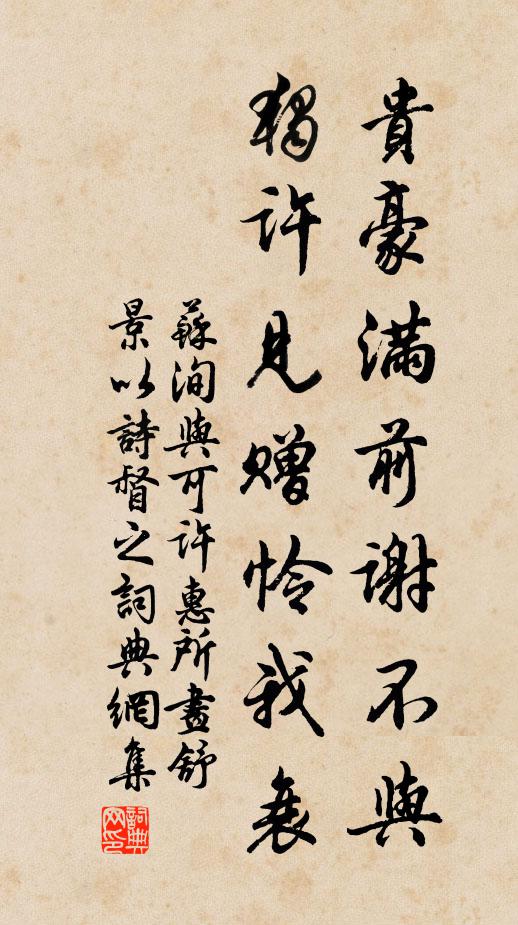 貴豪滿前謝不與
獨許見贈怜我衰
蘇洵與可許惠所畫舒
景以詩督之詞典網集
詞典网印